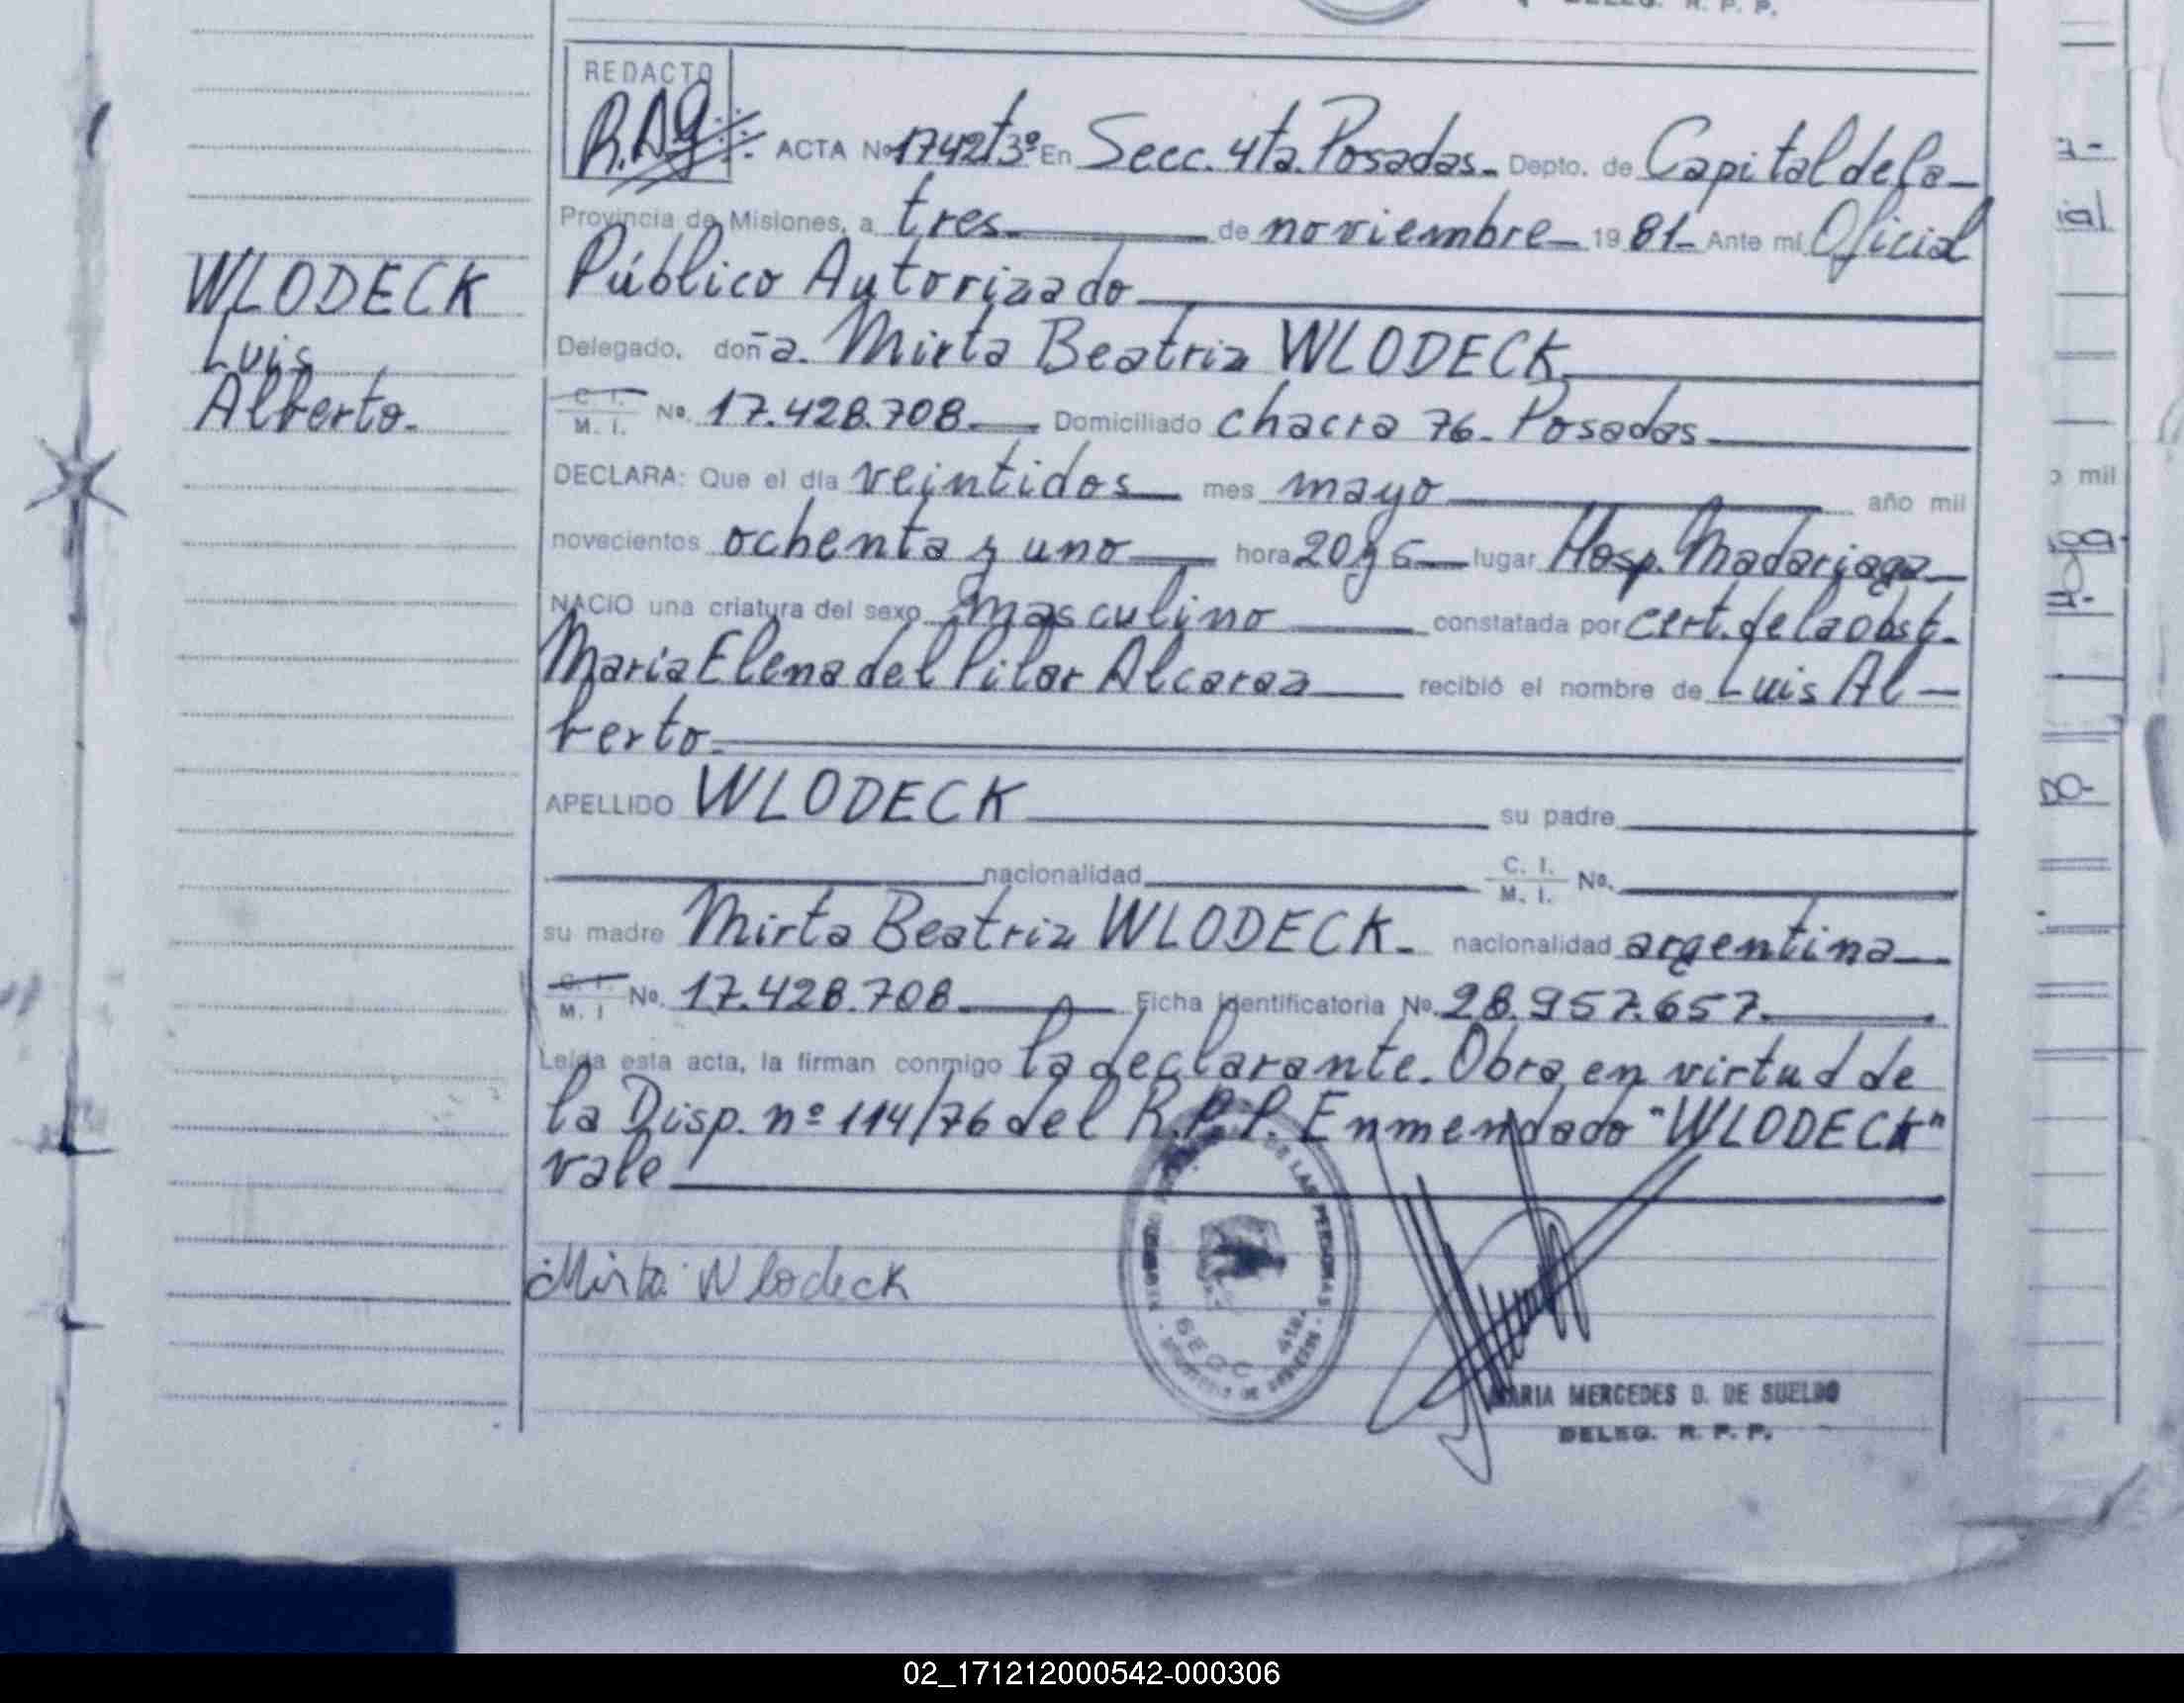 DELEG. R. P. P.
REDACTO
ACTA Nº 1742T3º En Secc. 4ta. Posadas. Depto. de Capital de la
Provincia de Misiones, a tres de noviembre 19 81 Ante mí Oficial
Público Autorizado
Delegado, doña. Mirta Beatriz WLODECK
C. I. M. I. Nº. 17.428.708 Domiciliado chacra 76. Posadas
DECLARA: Que el día veintidos mes mayo año mil
novecientos ochenta y uno hora 20 y 5 lugar Hosp. Madariaga
NACIO una criatura del sexo masculino constatada por cert. de la obst.
Maria Elena del Pilar Alcaraz recibió el nombre de Luis Al-
berto.
APELLIDO WLODECK su padre
nacionalidad C. I. M. I. Nº.
su madre Mirta Beatriz WLODECK. nacionalidad argentina
C. I. M. I Nº. 17.428.708 Ficha Identificatoria Nº. 28.957.657.
Leída esta acta, la firman conmigo la declarante. Obra en virtud de
la Disp. nº 114/76 del R.P.P. Enmendado "WLODECK"
vale
Mirta Wlodeck
MARIA MERCEDES D. DE SUELDO
DELEG. R. P. P.
WLODECK
Luis
Alberto.
ial
o mil
DO-
02_171212000542-000306